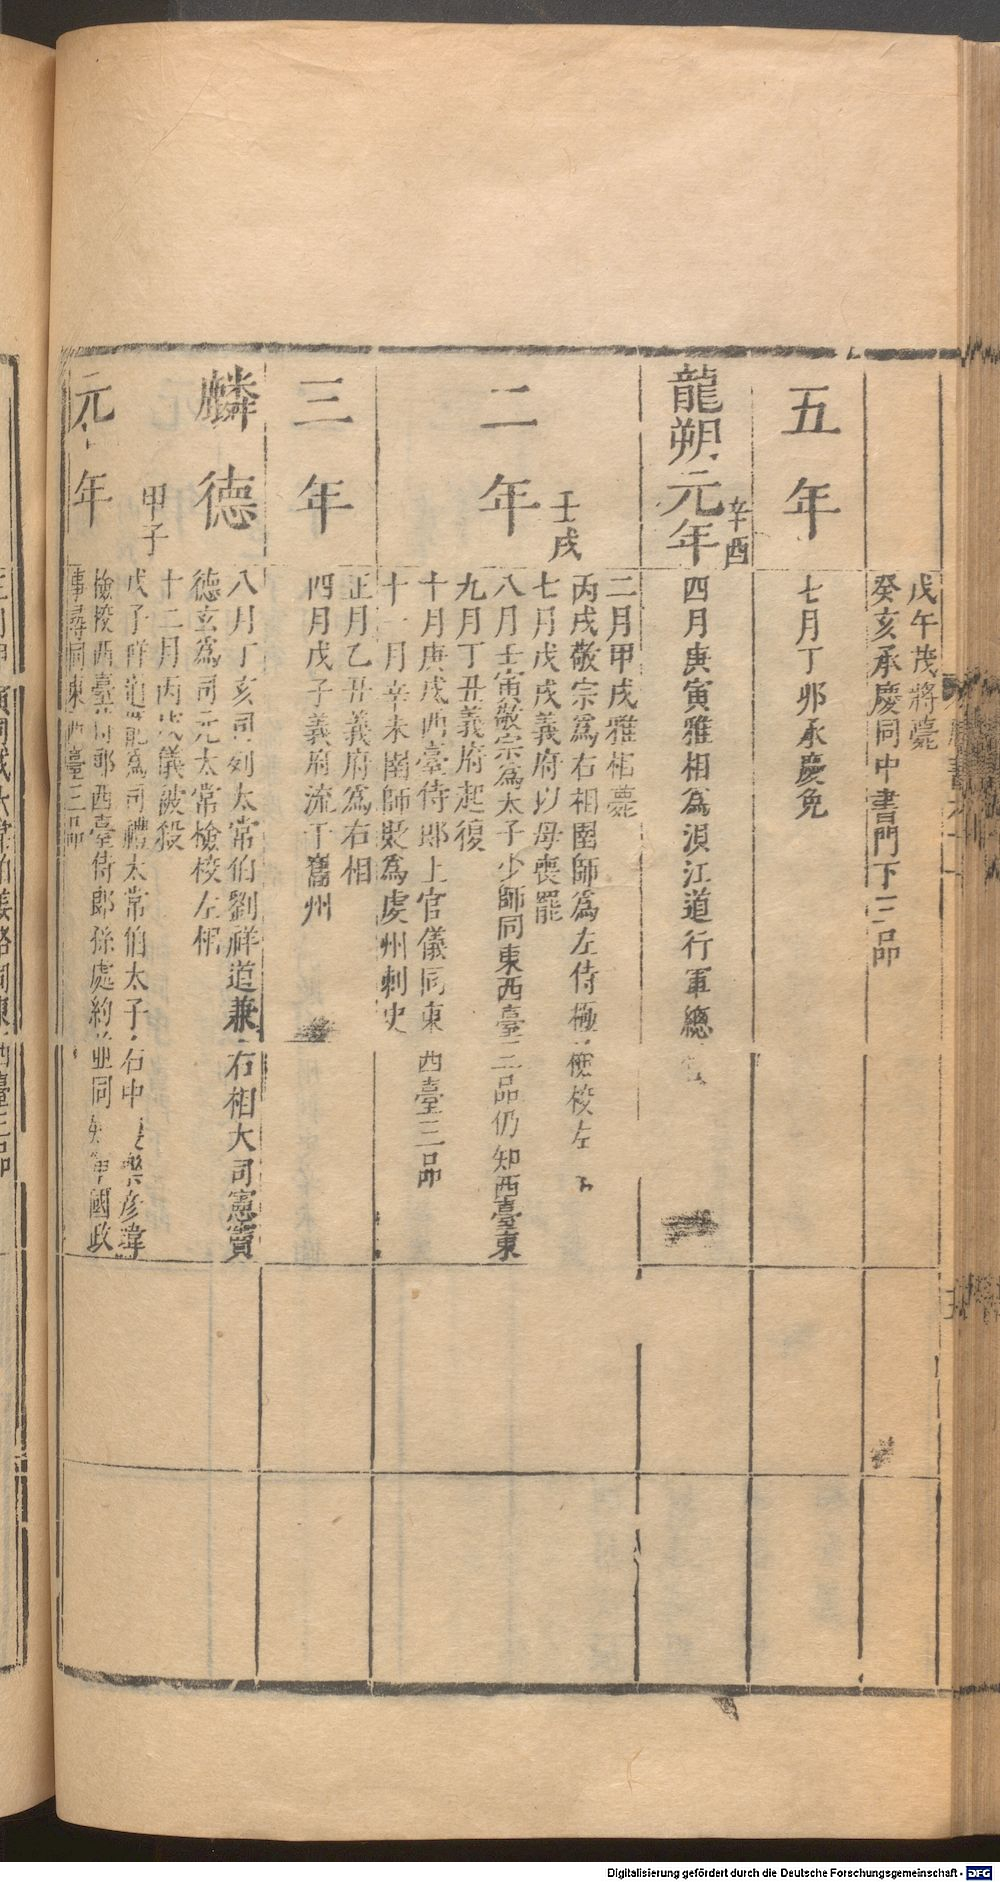 戊午茂將薨
癸亥承慶同中書門下三品
五年
七月丁卯承慶免
龍朔元年
辛酉
四月庚寅雅相爲浿江道行軍總
二年
壬戌
二月甲戌雅相薨
丙戌敬宗爲右相圉師爲左侍極檢校左
七月戊戌義府以母喪罷
八月壬寅敬宗爲太子少師同東西臺三品仍知西臺東
九月丁丑義府起復
十月庚戌西臺侍郎上官儀同東西臺三品
十一月辛未圉師貶爲虔州刺史
三年
正月乙丑義府爲右相
四月戊子義府流于巂州
麟德元年
甲子
八月丁亥司列太常伯劉祥道兼右相大司憲竇
德玄爲司元太常檢校左相
十二月丙戌儀被殺
戊子祥道罷爲司禮太常伯太子右中護樂彥瑋
檢校西臺侍郎西臺侍郎孫處約並同知軍國政
事尋同東西臺三品
寅同戎太常伯姜恪同東西臺三品
Digitalisierung gefördert durch die Deutsche Forschungsgemeinschaft - DFG